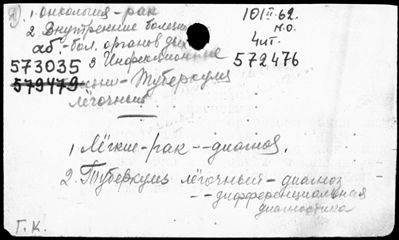 1. Онкология - рак
101II-62.
2 Внутренние болезни
н.о.
аб. - бол. органов дых.
4 ит.
573035 3 Инфекционные 572476
579479 - Туберкулез
лёгочный
1 Лёгкие - рак -- диагноз.
2. Туберкулез лёгочный - диагноз
-- дифференциальная
диагностика
Г. К.